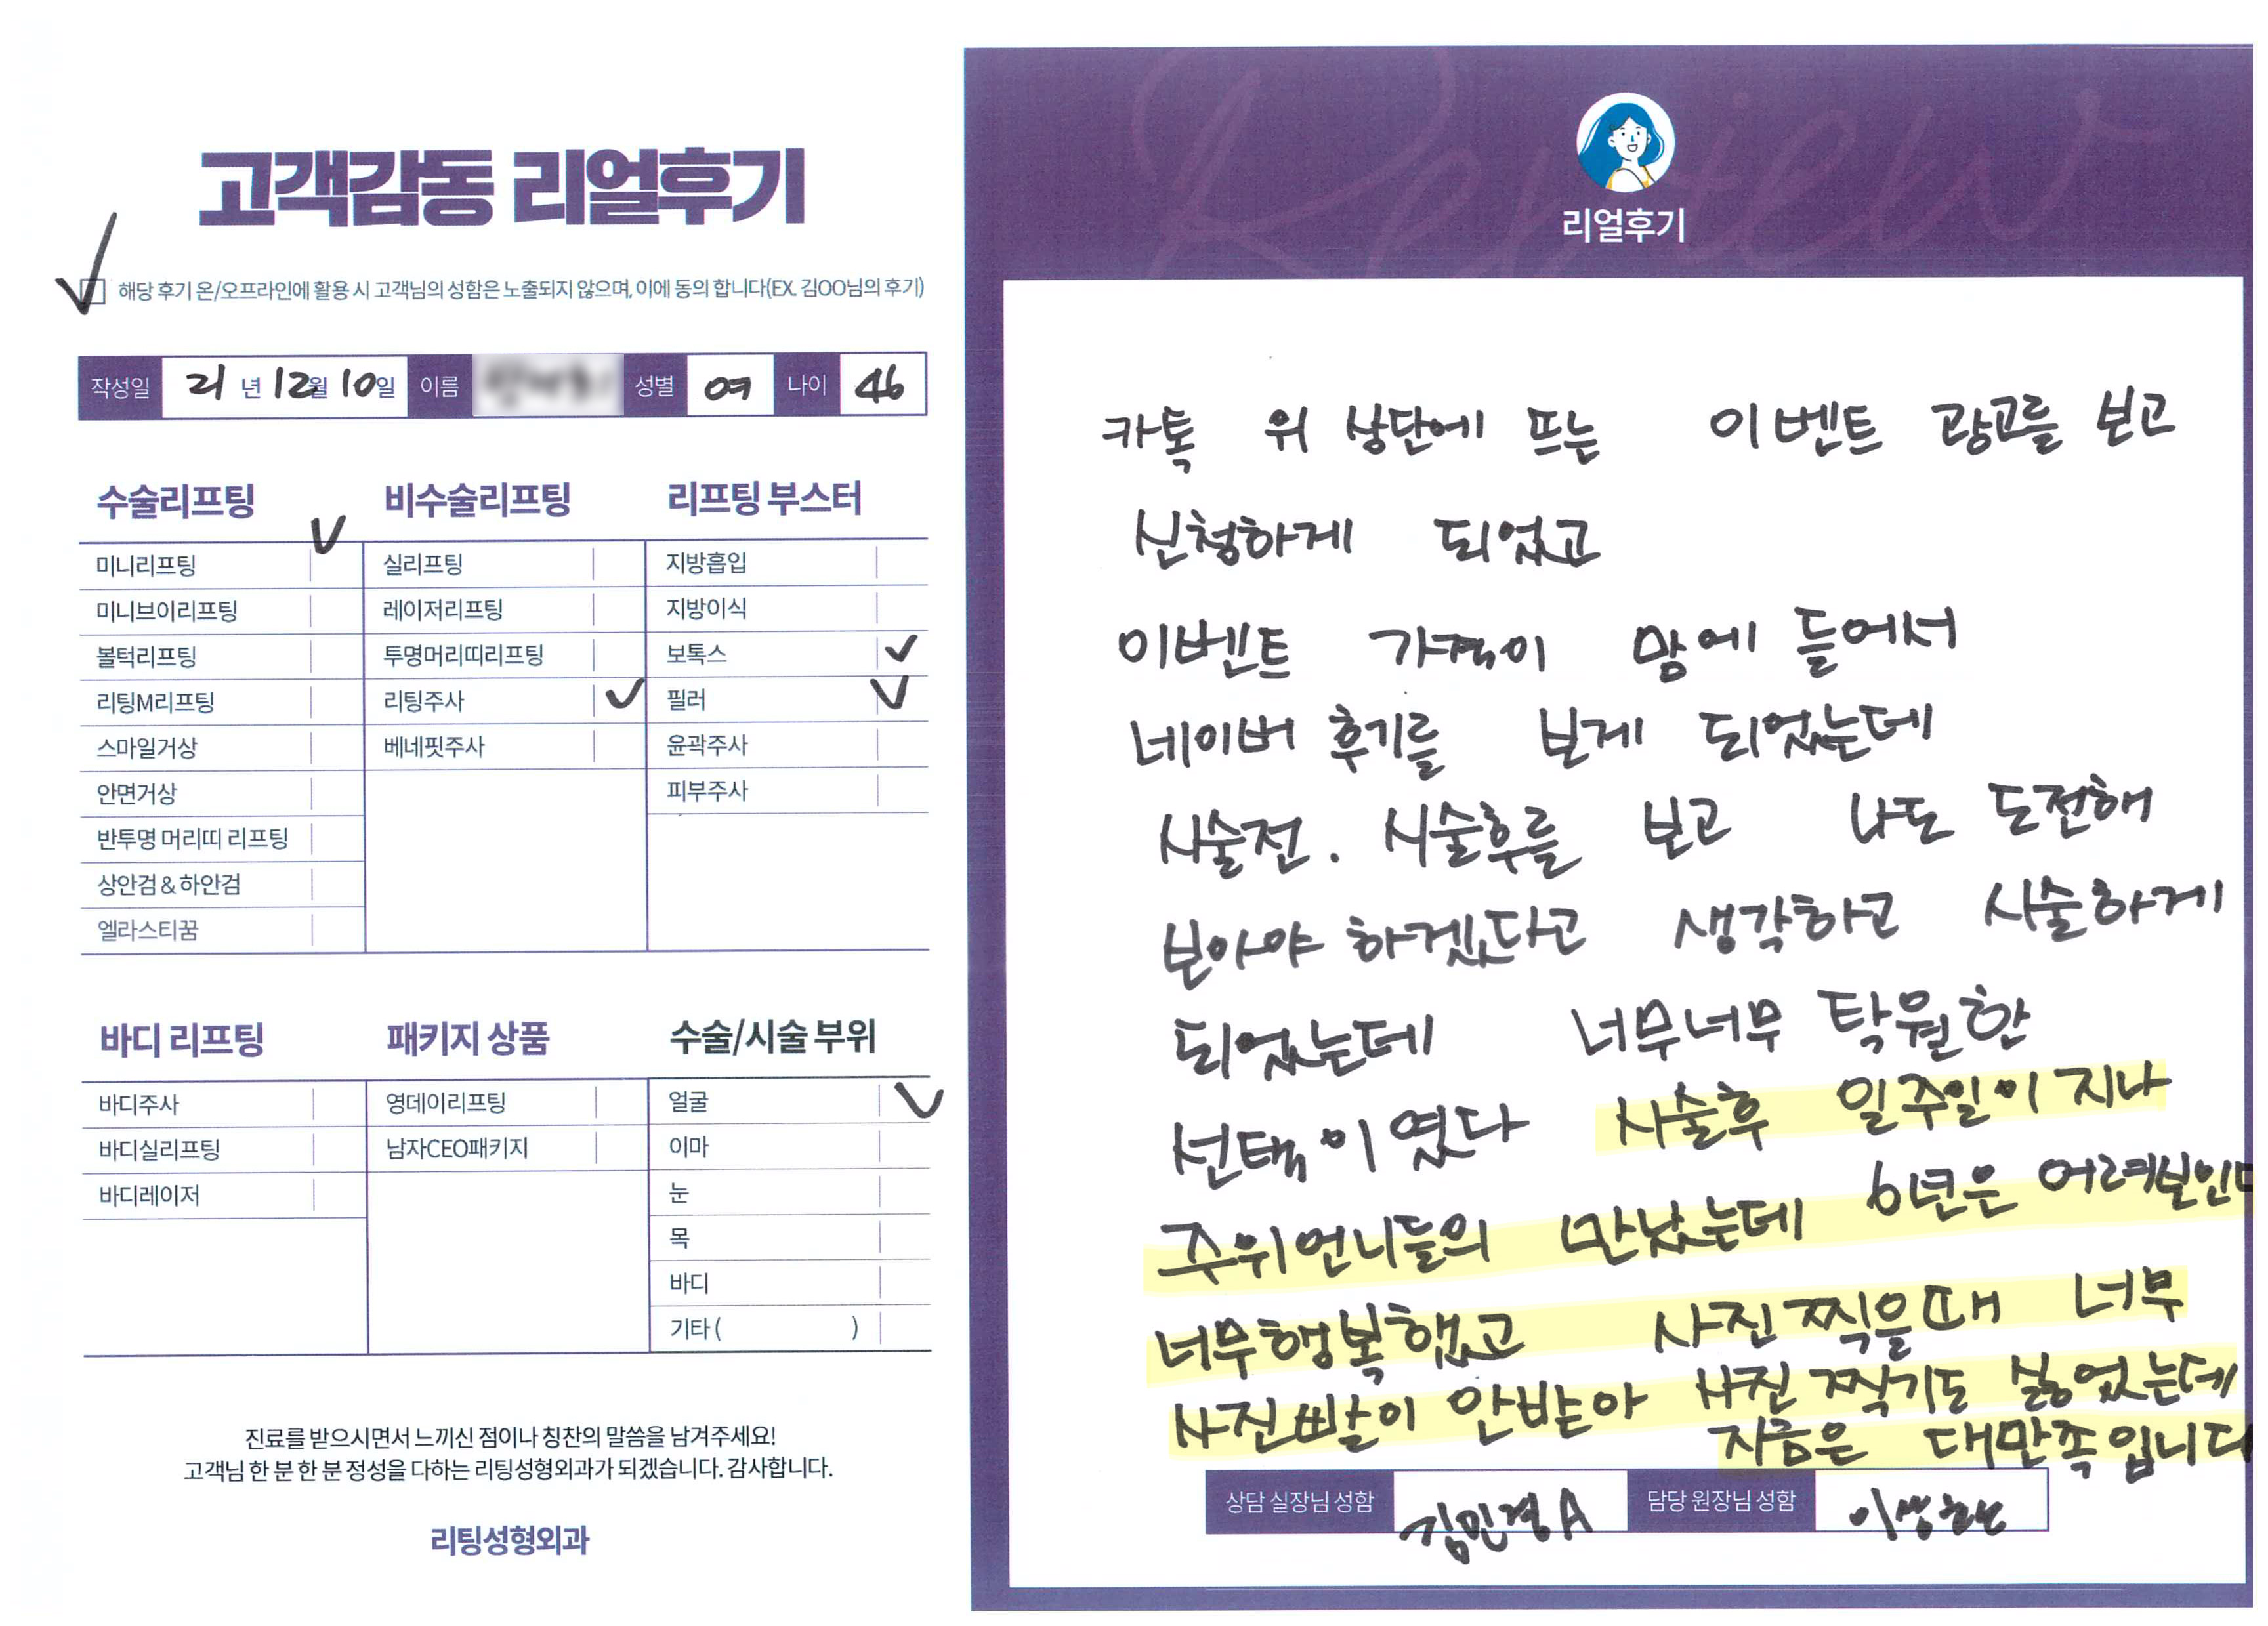 고객감동 리얼후기
해당 후기 온/오프라인에 활용 시 고객님의 성함은 노출되지 않으며, 이에 동의 합니다(EX. 김OO님의 후기)
작성일 21년 12월 10일 이름 성별 여 나이 46
수술리프팅 비수술리프팅 리프팅 부스터
미니리프팅 실리프팅 지방흡입
미니브이리프팅 레이저리프팅 지방이식
볼턱리프팅 투명머리띠리프팅 보톡스
리팅M리프팅 리팅주사 필러
스마일거상 베네핏주사 윤곽주사
안면거상 피부주사
반투명 머리띠 리프팅
상안검 & 하안검
엘라스티꿈
바디 리프팅 패키지 상품 수술/시술 부위
바디주사 영데이리프팅 얼굴
바디실리프팅 남자CEO패키지 이마
바디레이저 눈
목
바디
기타 ( )
진료를 받으시면서 느끼신 점이나 칭찬의 말씀을 남겨주세요!
고객님 한 분 한 분 정성을 다하는 리팅성형외과가 되겠습니다. 감사합니다.
리팅성형외과
Review
리얼후기
카톡 위 상단에 뜨는 이벤트 광고를 보고
신청하게 되었고
이벤트 가격이 맘에 들어서
네이버 후기를 보게 되었는데
시술전. 시술후를 보고 나도 도전해
보아야 하겠다고 생각하고 시술하게
되었는데 너무너무 탁월한
선택이였다 시술후 일주일이 지나
주위언니들의 만났는데 6년은 어려보인다
너무행복했고 사진찍을때 너무
사진빨이 안받아 사진찍기도 싫었는데
지금은 대만족입니다
상담 실장님 성함 김민경A 담당 원장님 성함